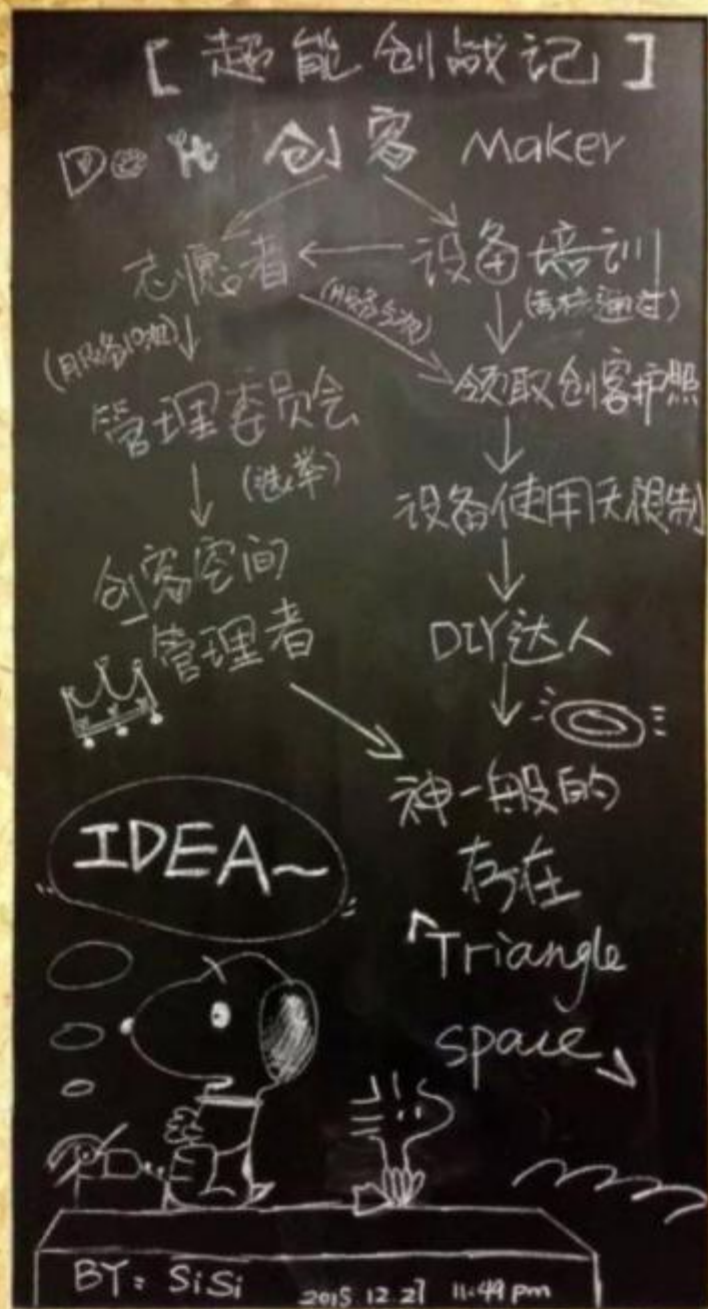 [超能创战记]
Do It 创客 Maker
志愿者 ← 设备培训
(服务10次) (服务5次) (考核通过)
管理委员会 领取创客护照
(选举) 设备使用无限制
创客空间
管理者 DIY达人
神一般的
存在
IDEA~
「Triangle
space」
BY: SiSi 2015.12.27 11:49 pm